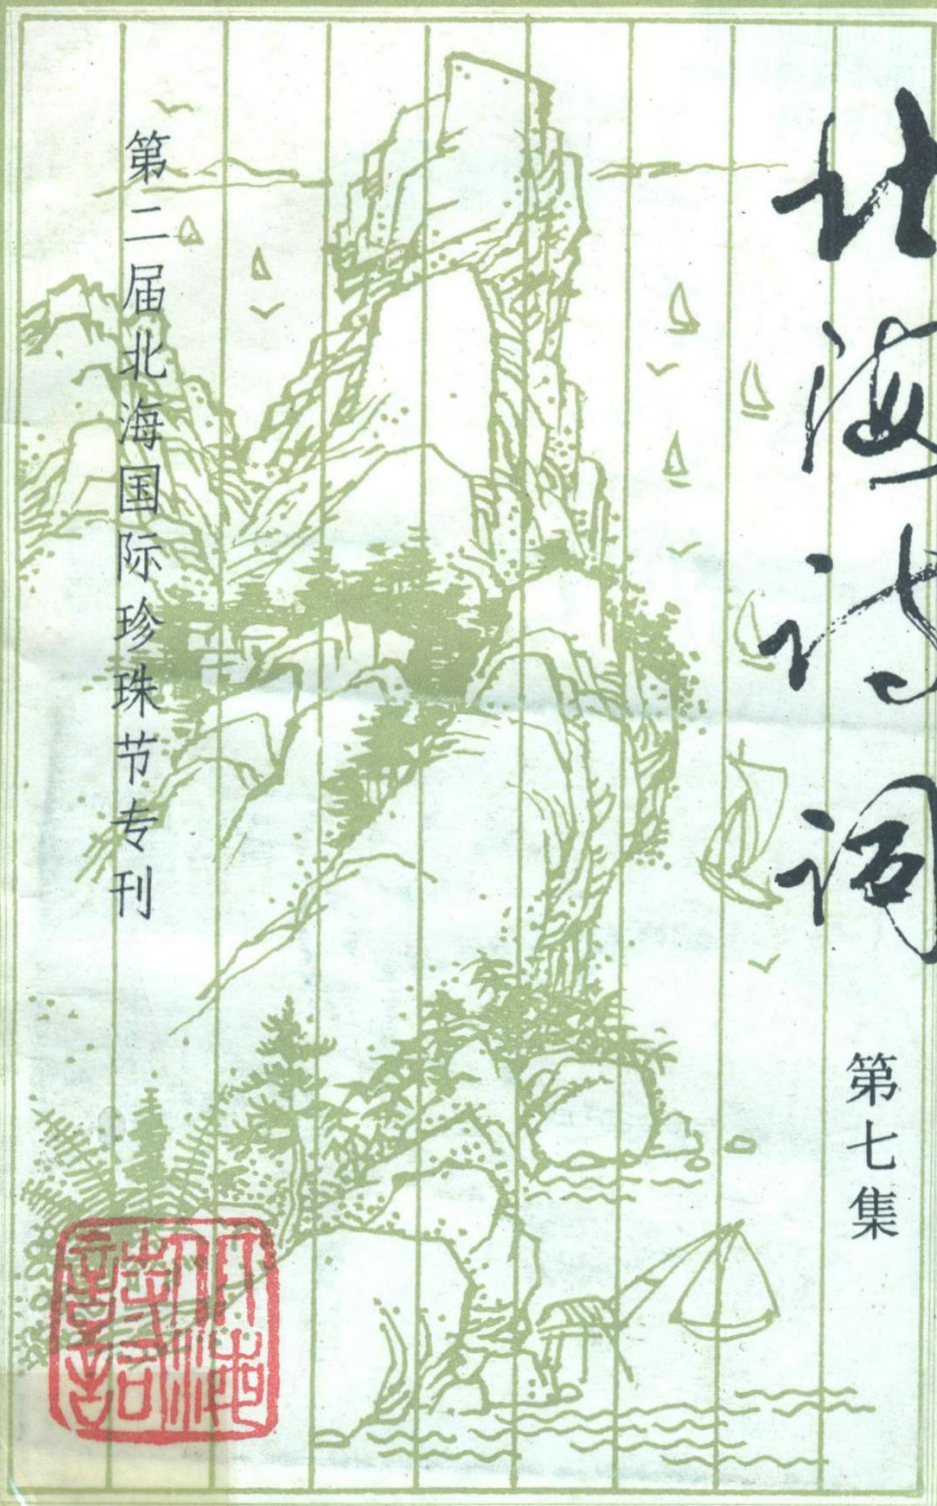 北海诗词
第七集
第二届北海国际珍珠节专刊